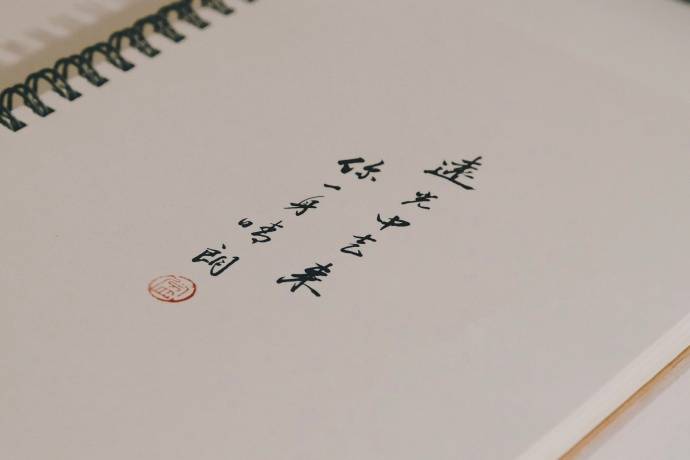 逆光中走来
你一身晴朗